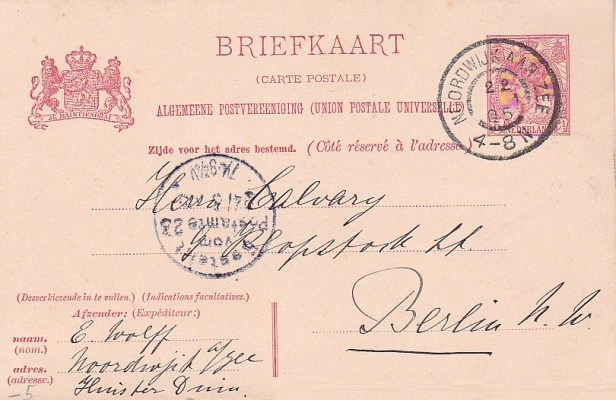 BRIEFKAART
(CARTE POSTALE)
ALGEMEENE POSTVEREENIGING (UNION POSTALE UNIVERSELLE)
Zijde voor het adres bestemd. (Côté réservé à l'adresse.)
JE MAINTIENDRAI
NOORDWIJK AAN ZEE
22
05
4-8 N
NEDERLAND
Bestellt
vom
Postamte 23
Herrn Calvary
Klopstock
Berlin N. W.
(Desverkiezende in te vullen.) (Indications facultatives.)
Afzender: (Expéditeur:)
naam. E. Wolff
(nom.)
adres. Noordwijk a/zee
(adresse.) Huis ter Duin
-5